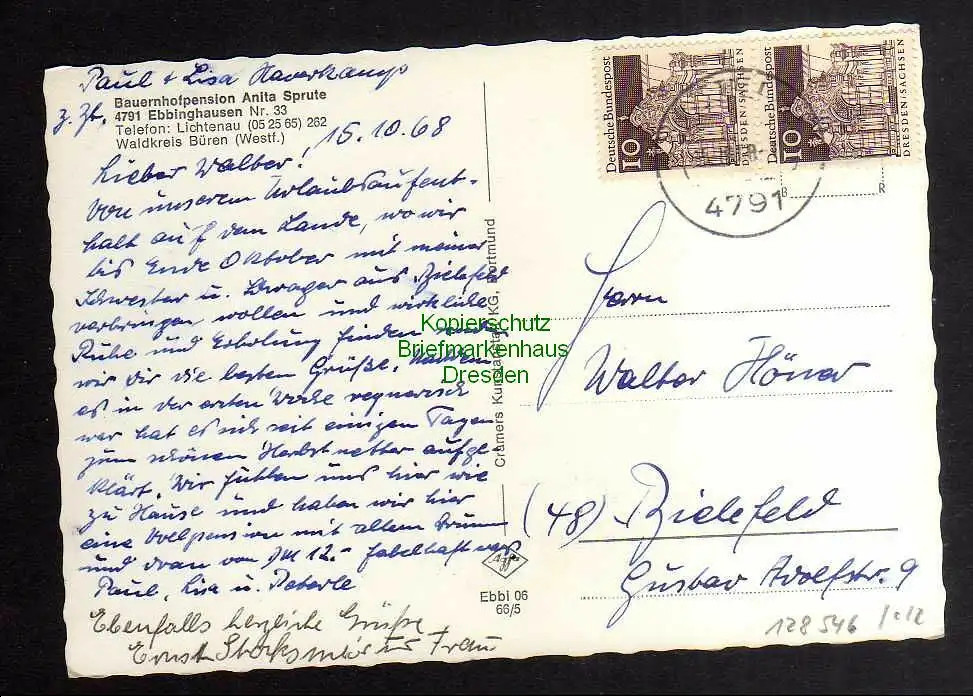 Paul + Lisa Haverkamp
z. Zt.
Bauernhofpension Anita Sprute
4791 Ebbinghausen Nr. 33
Telefon: Lichtenau (05 25 65) 262
Waldkreis Büren (Westf.)
15.10.68
Lieber Walter!
Von unserem Urlaubsaufent-
halt auf dem Lande, wo wir
bis Ende Oktober mit meiner
Schwester u. Schwager aus Bielefeld
verbringen wollen und wirkliche
Ruhe und Erholung finden
wir Dir die besten Grüße,
es in der ersten Woche regnerisch
war hat es sich seit einigen Tagen
zum schönen Herbstwetter aufge-
klärt. Wir fühlen uns hier wie
zu Hause und haben wir hier
eine Vollpension mit allem
und dran von DM 12.- fabelhaft
Paul, Lisa u.
Ebenfalls herzliche Grüße
Ernst und Frau
Cramers Kunstanstalt KG, Dortmund
Ebbi 06
66/5
Deutsche Bundespost
10
DRESDEN/SACHSEN
Deutsche Bundespost
10
DRESDEN/SACHSEN
4791
B R
Herrn
Walter Höner
(48) Bielefeld
Gustav Adolfstr. 9
128546
Kopierschutz
Briefmarkenhaus
Dresden